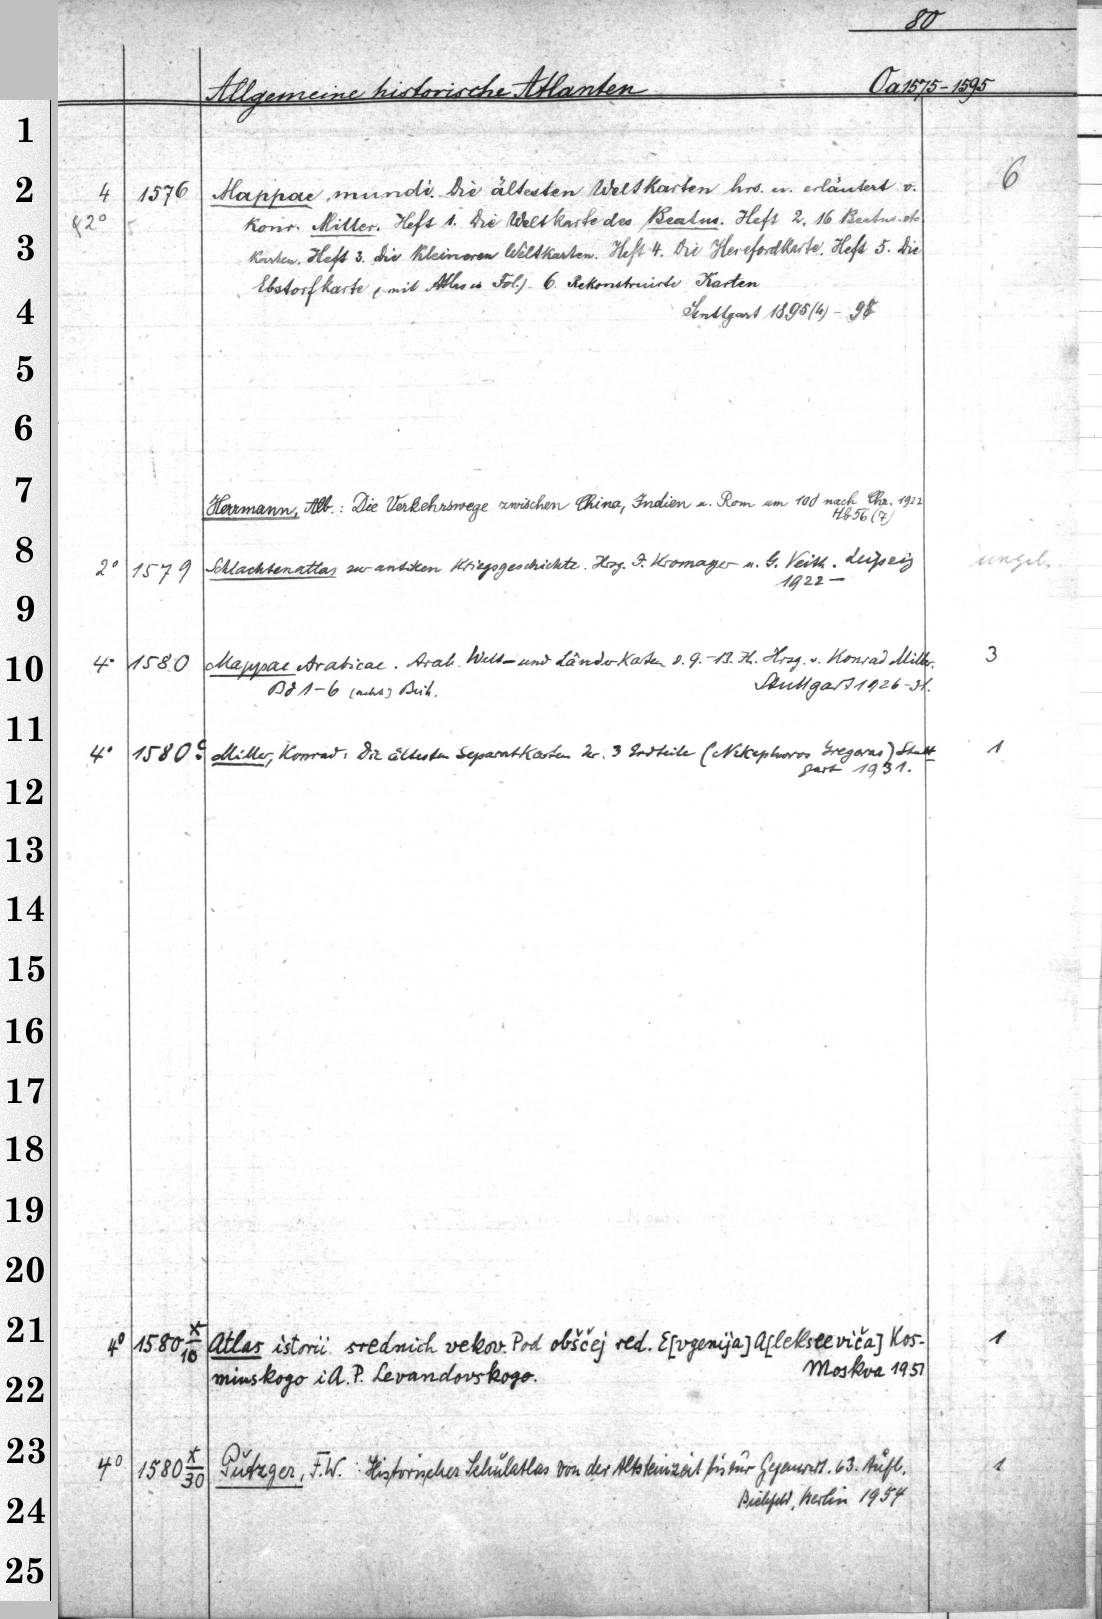 80
Allgemeine historische Atlanten Oa 1575-1595
1
2 4 1576 Mappae mundi. Die ältesten Weltkarten hrs. u. erläutert v. 6
& 2° Konr. Miller. Heft 1. Die Weltkarte des Beatus. Heft 2. 16 Beatus-
3 Karten. Heft 3. Die kleineren Weltkarten. Heft 4. Die Herefordkarte. Heft 5. Die
Ebstorfkarte (mit Atlas in Fol.) - 6. Rekonstruierte Karten
4 Stuttgart 1895(4) - 98
5
6
7 Herrmann, Alb.: Die Verkehrswege zwischen China, Indien u. Rom um 100 nach Chr. 1922
Hb 56 (7)
8 2° 1579 Schlachtenatlas zur antiken Kriegsgeschichte. Hrsg. J. Kromayer u. G. Veith. Leipzig ungeb.
1922 -
9
10 4° 1580 Mappae Arabicae. Arab. Welt- und Länderkarten d. 9.-13. Jh. Hrsg. v. Konrad Miller. 3
Bd 1-6 Beih. Stuttgart 1926-31.
11 4° 1580 c Miller, Konrad: Die ältesten Separatkarten der 3 Erdteile (Nikephoros Gregoras) Stutt- 1
gart 1931.
12
13
14
15
16
17
18
19
20
21 4° 1580 x/10 Atlas istorii srednich vekov. Pod obščej red. E[vgenija] A[lekseeviča] Kos- 1
22 minskogo i A. P. Levandovskogo. Moskva 1951
23 4° 1580 x/30 Putzger, F.W.: Historischer Schulatlas von der Altsteinzeit bis zur Gegenwart. 63. Aufl. 1
24 Bielefeld, Berlin 1954
25